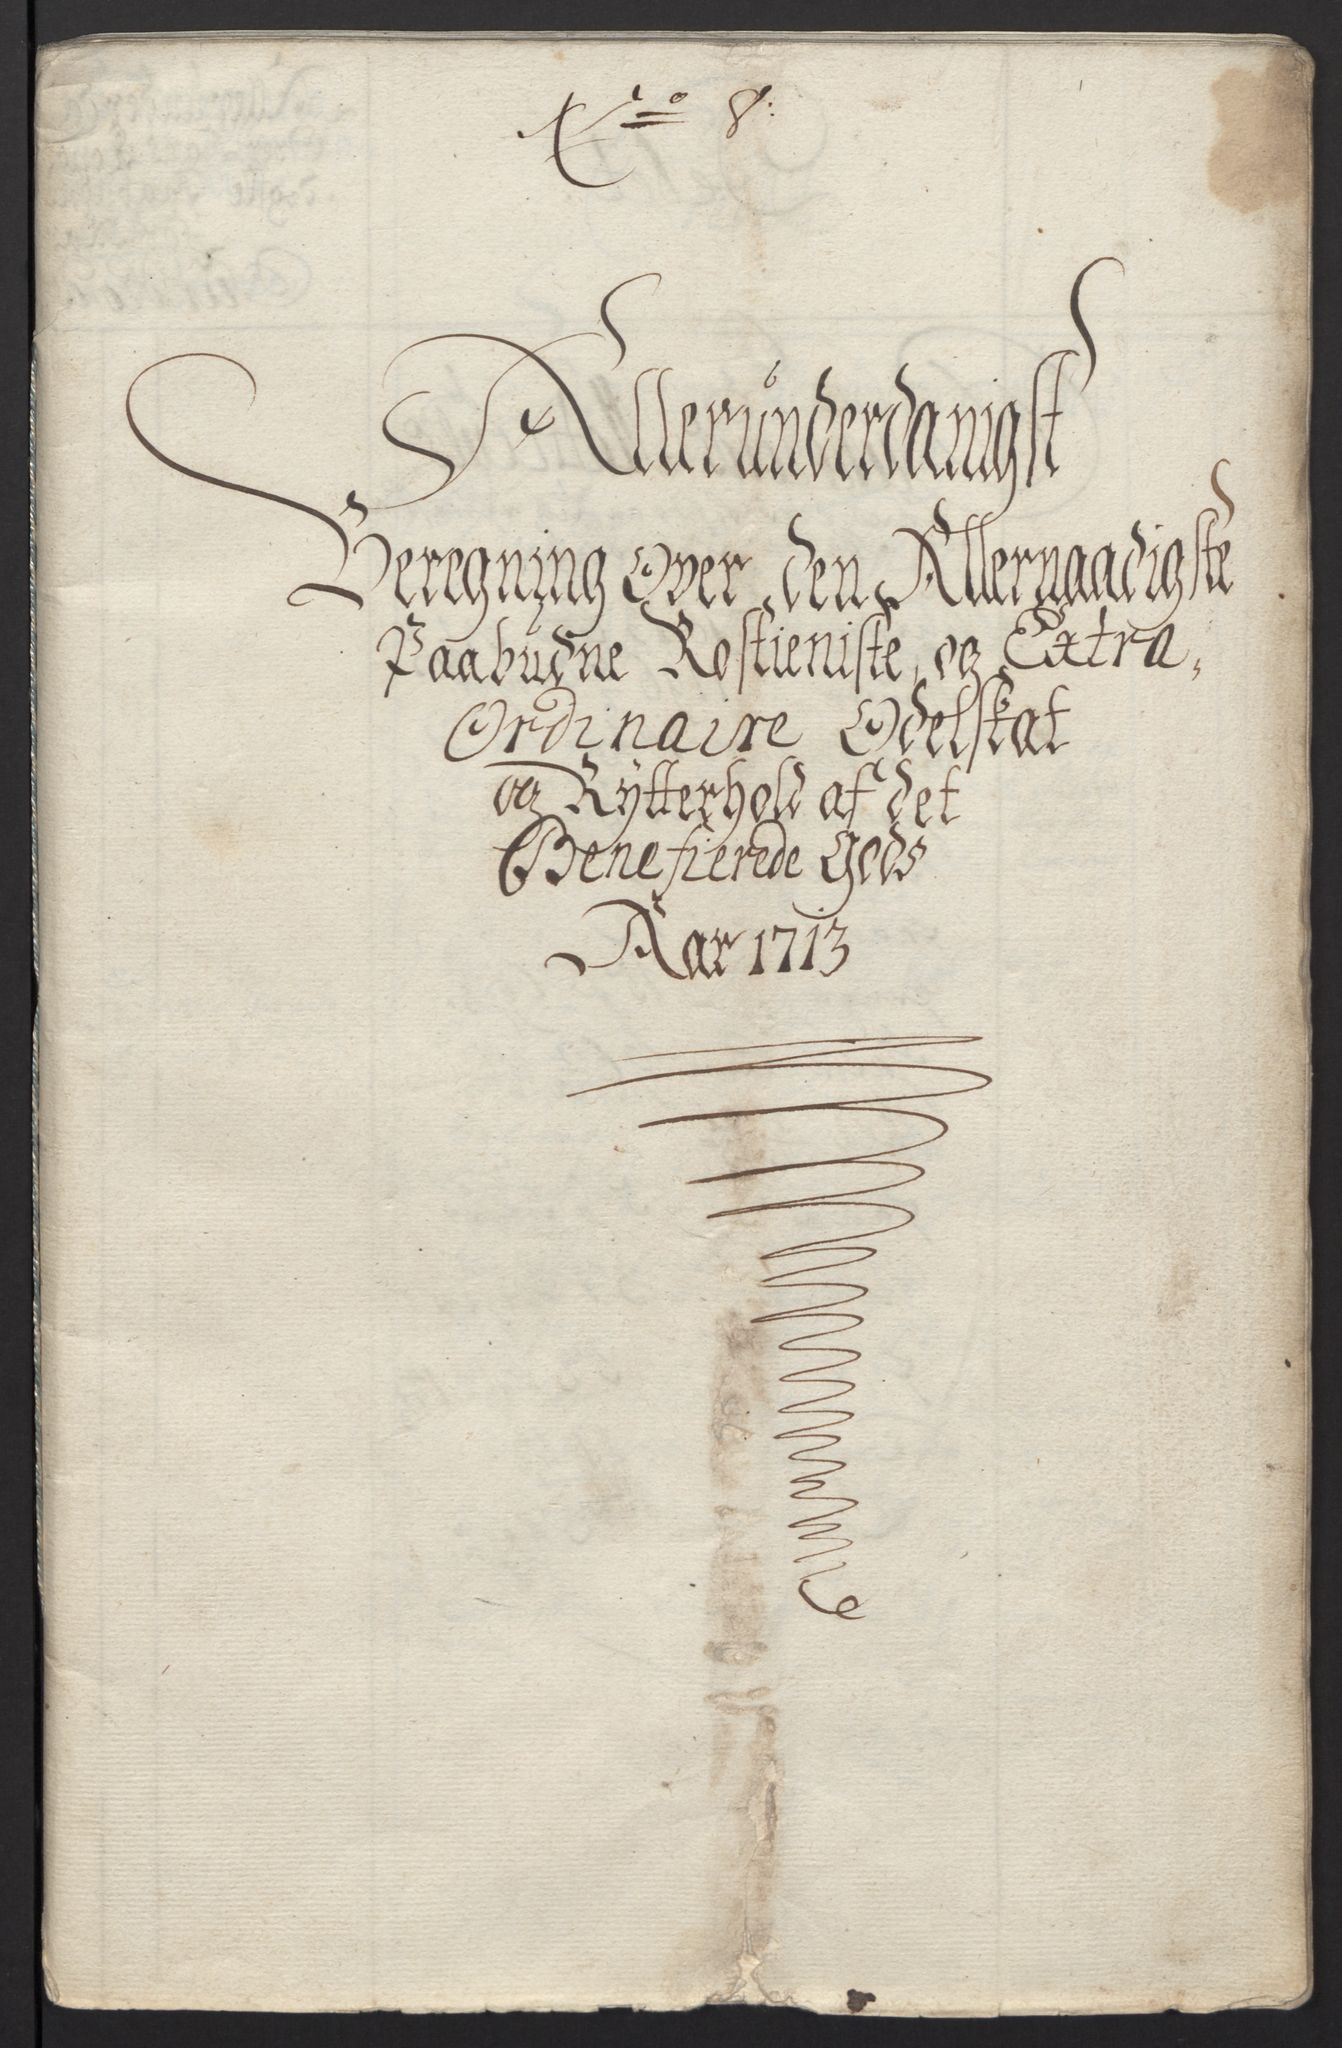 No 8:
Allerunderdanigst
Beregning Over den Allernaadigste
Paabudne Rostieniste, og Extra,
Ordinaire Odelskat
og Rÿtterhold af det
Benefierede Gods
Aar 1713